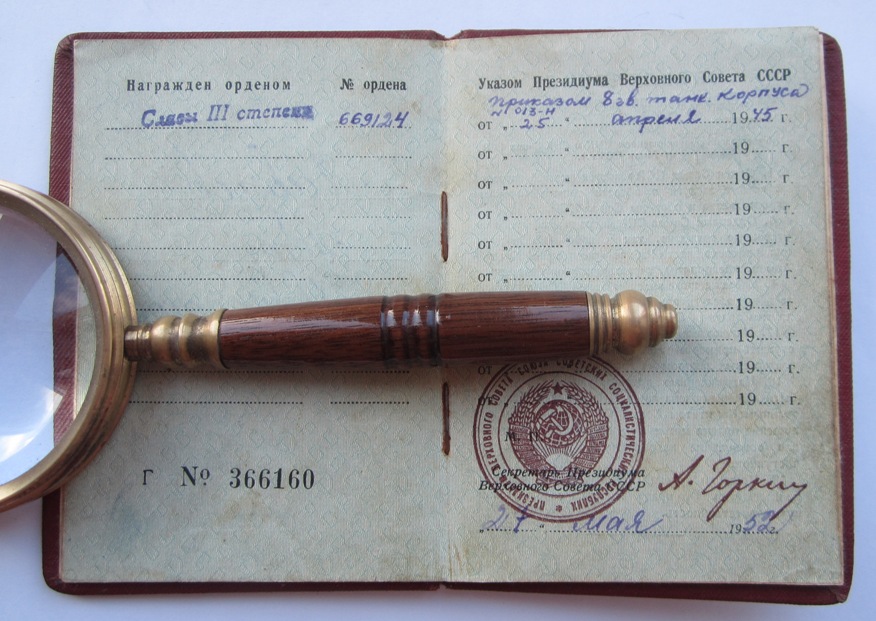 Награжден орденом № ордена
Славы III степени 669124
Г № 366160
Указом Президиума Верховного Совета СССР
приказом 8 гв. танк. корпуса
№ 013-н
от „ 25 “ апреля 1945 г.
от „ “ 19 г.
от „ “ 19 г.
от „ “ 19 г.
от „ “ 19 г.
от „ “ 19 г.
19 г.
19 г.
от „ “ 19 г.
19 г.
Секретарь Президиума
Верховного Совета СССР А. Горкин
мая 1952 г.